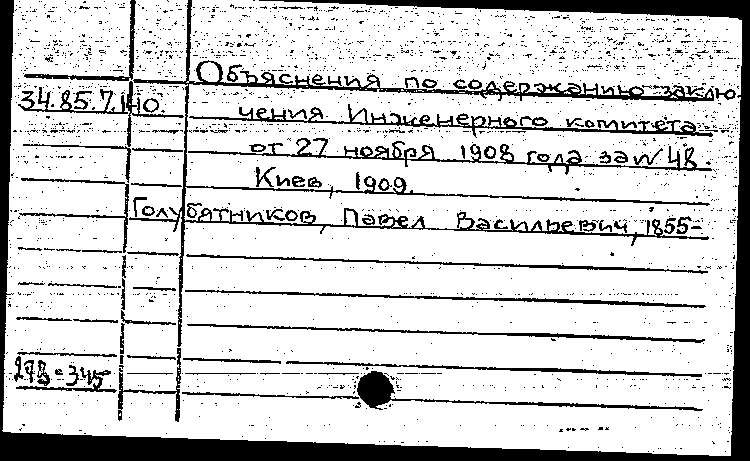 Объяснения по содержанию заклю-
34.85.7.140. чения Инженерного комитета
от 27 ноября 1908 года за № 48.
Киев, 1909.
Голубятников, Павел Васильевич, 1855-